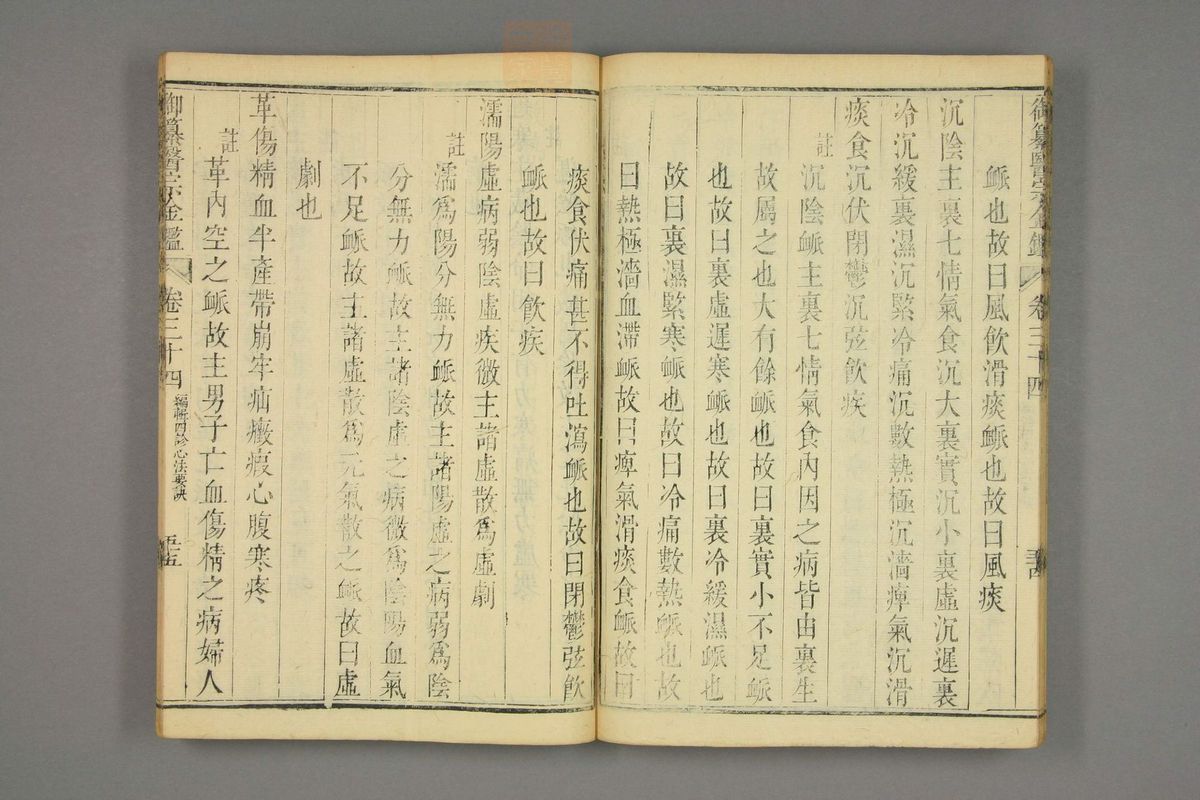 御纂醫宗金鑑 卷三十四
脈也故曰風飲滑痰脈也故曰風痰
沉陰主裏七情氣食沉大裏實沉小裏虛沉遲裏
冷沉緩裏濕沉緊冷痛沉數熱極沉濇痺氣沉滑
痰食沉伏閉鬱沉弦飲疾
註沉陰脈主裏七情氣食內因之病皆由裏生
故屬之也大有餘脈也故曰裏實小不足脈
也故曰裏虛遲寒脈也故曰裏冷緩濕脈也
故曰裏濕緊寒脈也故曰冷痛數熱脈也故
曰熱極濇血滯脈故曰痺氣滑痰食脈故曰
痰食伏痛甚不得吐瀉脈也故曰閉鬱弦飲
脈也故曰飲疾
濡陽虛病弱陰虛疾微主諸虛散爲虛劇
註濡爲陽分無力脈故主諸陽虛之病弱爲陰
分無力脈故主諸陰虛之病微爲陰陽血氣
不足脈故主諸虛散爲元氣散之脈故曰虛
劇也
革傷精血半產帶崩牢疝癥瘕心腹寒疼
註革內空之脈故主男子亡血傷精之病婦人
御纂醫宗金鑑 卷三十四 編輯四診心法要訣 五十五